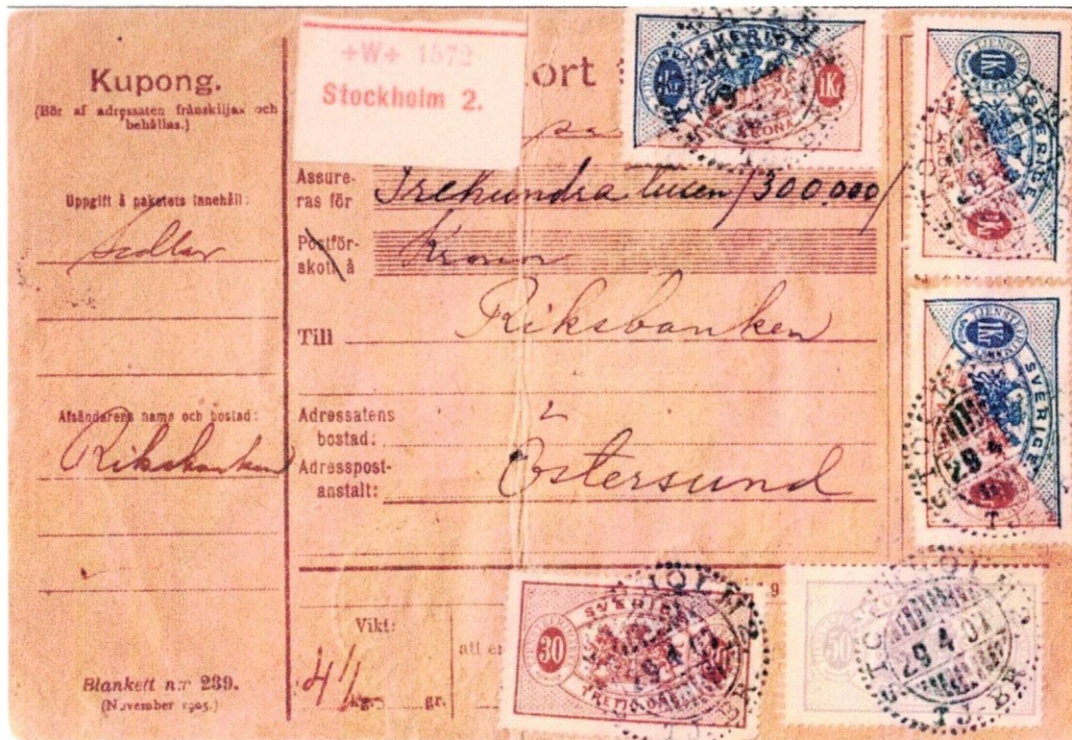 Kupong.
(Bör af adressaten frånskiljas och
behållas.)
Uppgift å paketets innehåll:
Sedlar
Afsändarens namn och bostad:
Riksbanken
Blankett n:r 239.
(November 1905.)
+W+ 1572
Stockholm 2.
ort
Assure-
ras för
Trehundra tusen/300,000/
Postför-
skott å
Kronor
Till
Riksbanken
Adressatens
bostad:
Adresspost-
anstalt:
Östersund
Vikt:
4 1/
kg. gr.
att
9
SVERIGE
1 Kr
1 Kr
KRONA
1 Kr
SVERIGE
1 Kr
TJENSTEFRIMÄRKE
1 Kr
SVERIGE
29 4
SVERIGE
30
TRETIO ÖRE
50
STOCKHOLM 2
29 4 07
TJ. BR.